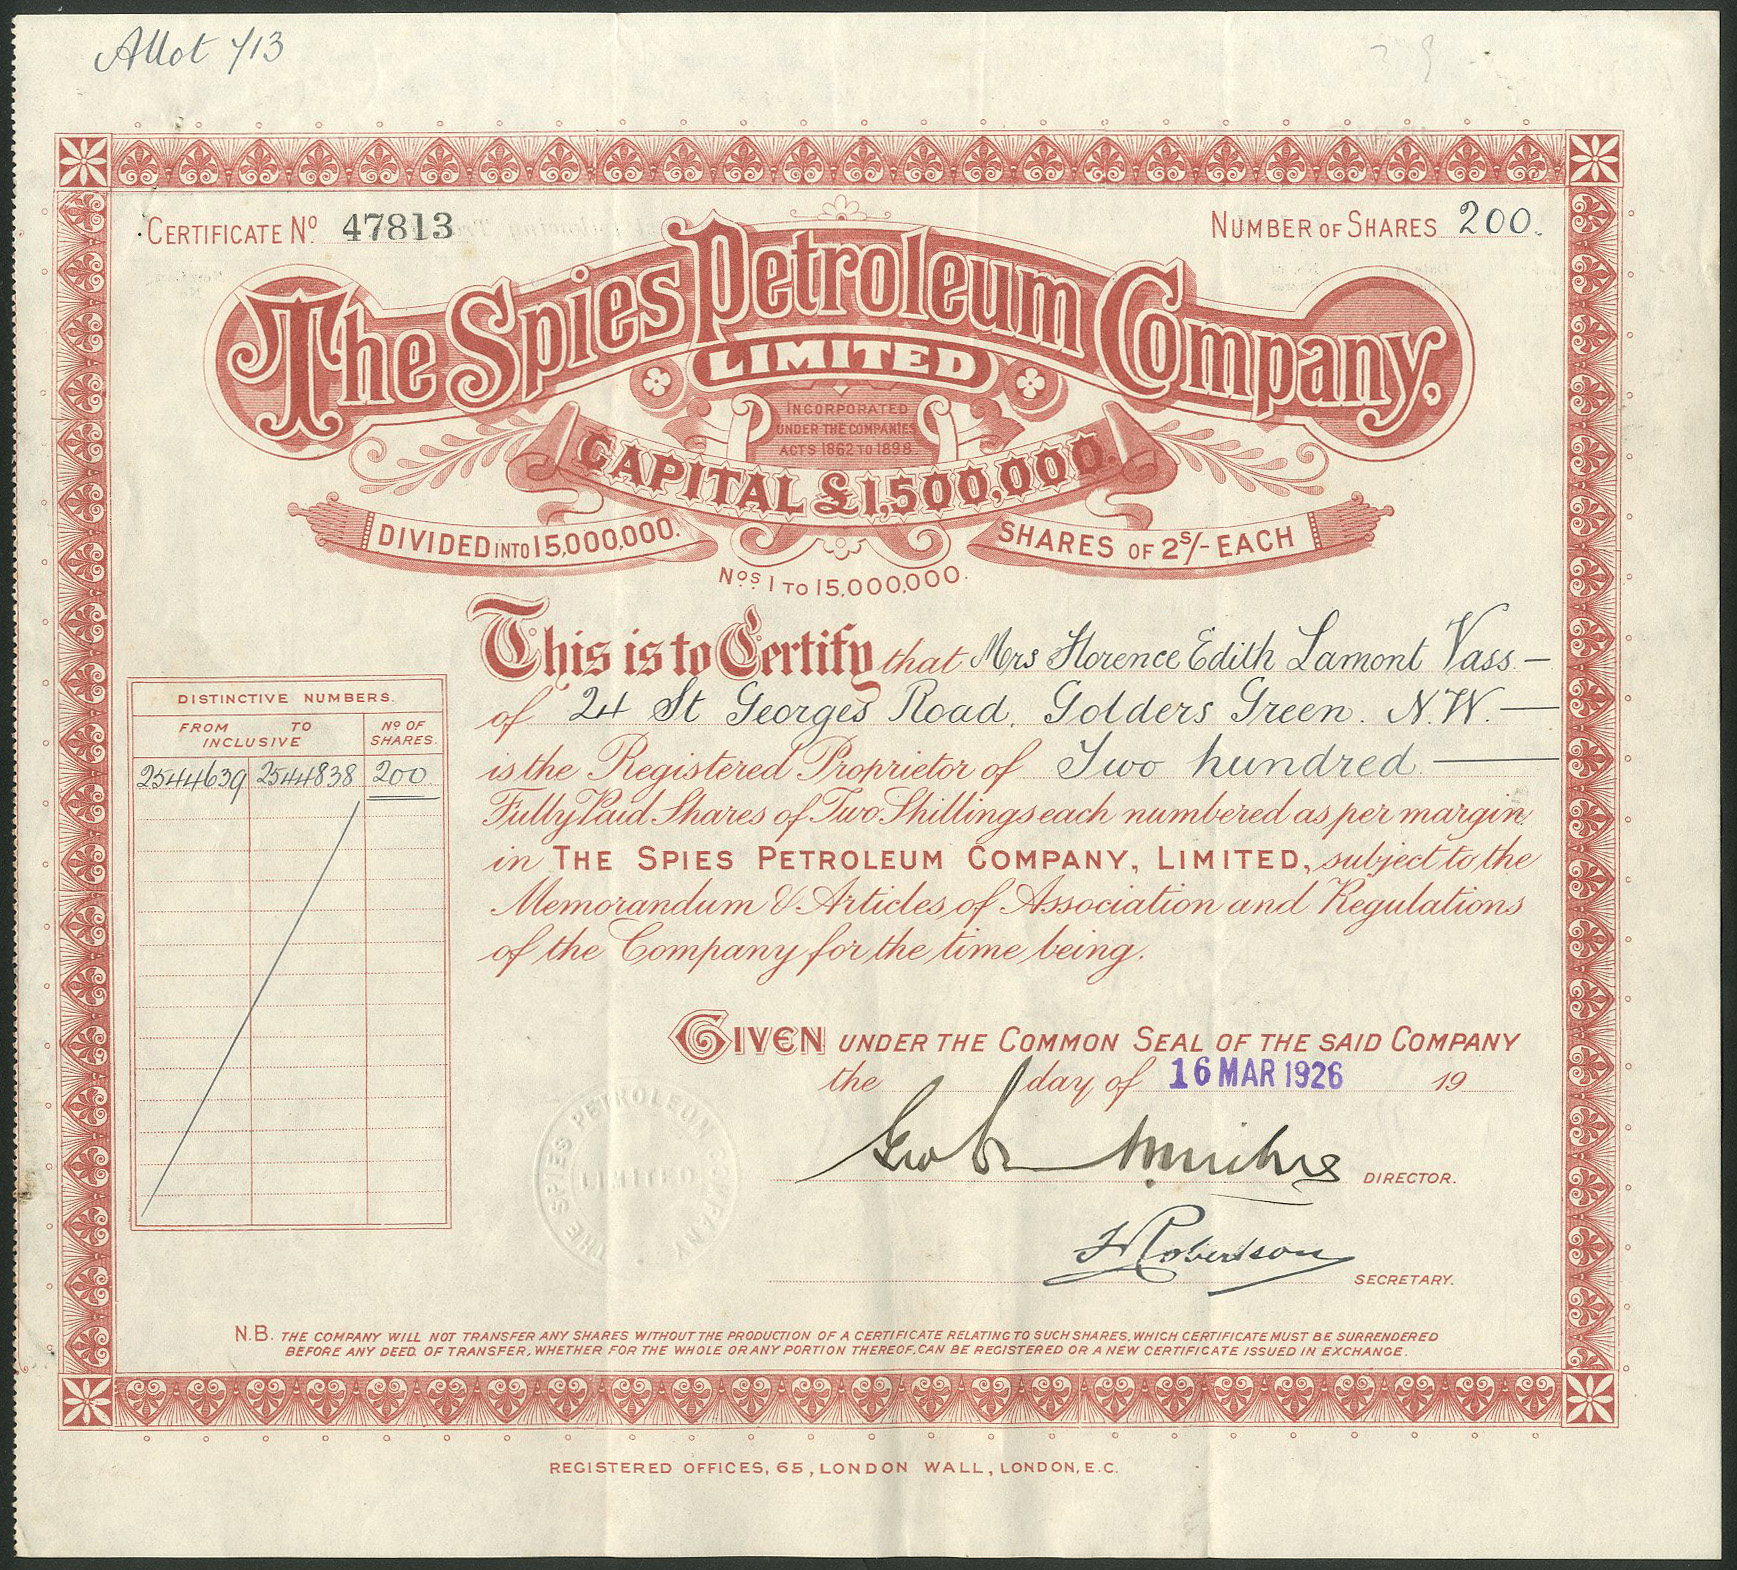 Allot 713
CERTIFICATE Nº 47813
NUMBER OF SHARES 200.
The Spies Petroleum Company,
LIMITED
INCORPORATED
UNDER THE COMPANIES
ACTS 1862 TO 1898
CAPITAL £1,500,000.
DIVIDED INTO 15,000,000. SHARES OF 2s/- EACH
Nos 1 TO 15,000,000.
This is to Certify that Mrs Florence Edith Lamont Vass —
of 24 St Georges Road, Golders Green. N.W. —
is the Registered Proprietor of Two hundred —
Fully Paid Shares of Two Shillings each numbered as per margin
in THE SPIES PETROLEUM COMPANY, LIMITED, subject to the
Memorandum & Articles of Association and Regulations
of the Company for the time being.
DISTINCTIVE NUMBERS.
FROM TO Nº OF
INCLUSIVE SHARES.
2544639 2544838 200
GIVEN UNDER THE COMMON SEAL OF THE SAID COMPANY
the day of 16 MAR 1926 19
DIRECTOR.
THE SPIES PETROLEUM COMPANY
LIMITED
Robertson
SECRETARY.
N.B. THE COMPANY WILL NOT TRANSFER ANY SHARES WITHOUT THE PRODUCTION OF A CERTIFICATE RELATING TO SUCH SHARES, WHICH CERTIFICATE MUST BE SURRENDERED
BEFORE ANY DEED OF TRANSFER, WHETHER FOR THE WHOLE OR ANY PORTION THEREOF, CAN BE REGISTERED OR A NEW CERTIFICATE ISSUED IN EXCHANGE.
REGISTERED OFFICES, 65, LONDON WALL, LONDON, E.C.